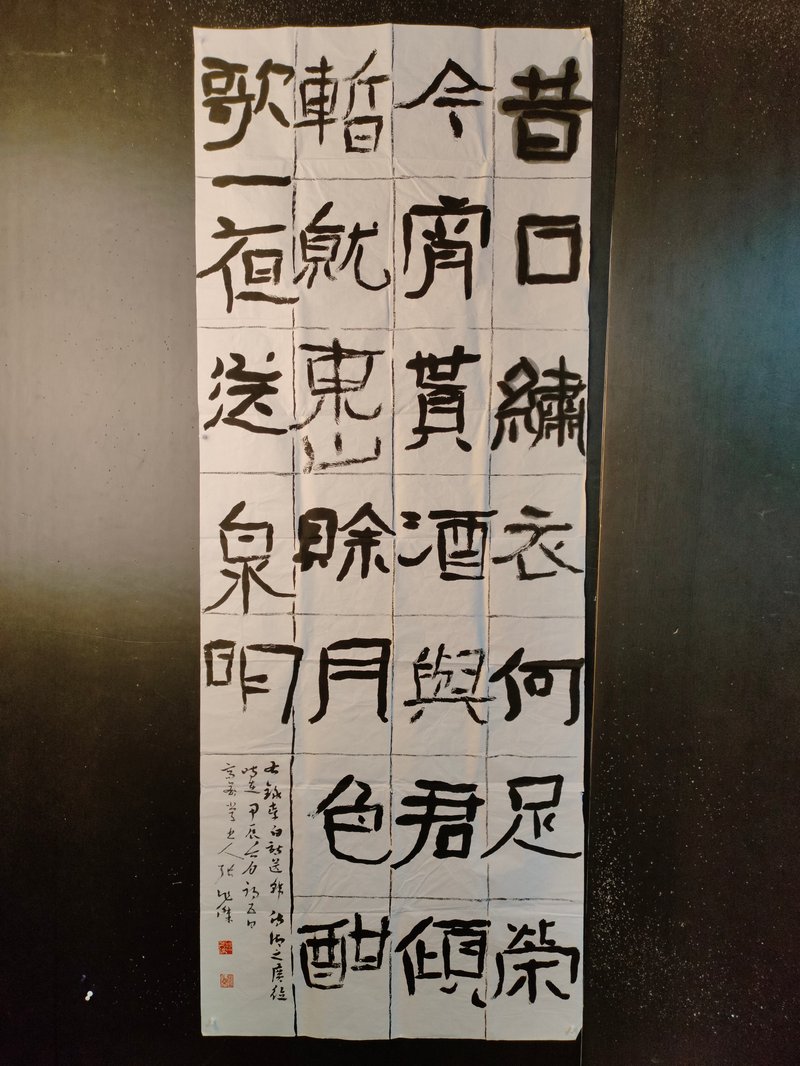 昔日繡衣何足榮
今宵貰酒與君傾
暫就東山賒月色酣
歌一夜送泉明
右錄李白詩送韓侍御之廣德
甲辰八月初五日